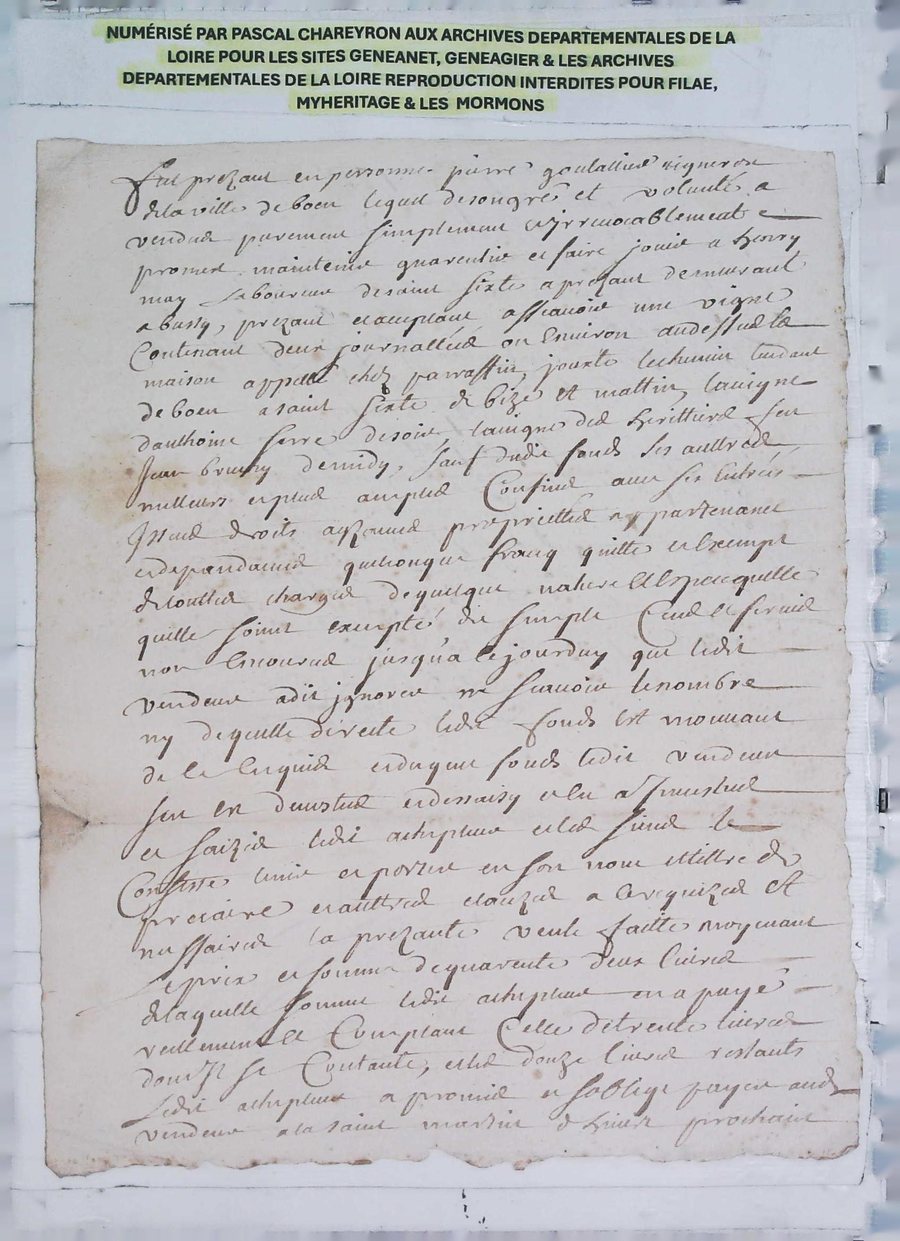 NUMÉRISÉ PAR PASCAL CHAREYRON AUX ARCHIVES DEPARTEMENTALES DE LA
LOIRE POUR LES SITES GENEANET, GENEAGIER & LES ARCHIVES
DEPARTEMENTALES DE LA LOIRE REPRODUCTION INTERDITES POUR FILAE,
MYHERITAGE & LES MORMONS
fut prezant en personne pierre goutattier vigneron
de la ville de boen lequel de son gré et volonté a
vendut purement simplement et irrevocablement e
promet maintenir guarentir et faire jouir a henry
may laboureur de saint sixte a prezant demeurant
a bussy, prezant et acceptant assavoir une vigne
Contenant deux journallées ou environ audessus de la
maison appellé chez parrassin, jouxte le chemin tendant
de boen a saint sixte de bize et mattin, la vigne
danthoine serre de soir, la vigne des herittiers feu
Jean de midy, sauf dudit fonds ses auttres
meilleurs et plus amples Confins avec ses entrées
Issues droits aizances proprietés appartenances
et dependances quelconque franq quitte et exempt
de touttes charges de quelque nature et espece quelle
quelle soient excepté du simple Cens et servis
non encourus jusqua ce jourduy que ledit
vendeur a dit ignorer ne scavoir le nombre
ny de quelle directe ledit fonds est mouvant
de ce enquis et duquel fonds ledit vendeur
sen est demis et dessaisy et en a investue
et saizie ledit achepteur et les siens le
Constitué tenir et porter en son nom et tittre de
precaire et auttres clauzes a ce requizes et
nessaires la prezante vente faitte moyenant
le prix et somme de quarente deux livres
de laquelle somme ledit achepteur en a payé
reellement et Comptant Celle de trente livres
dont Il se Contante, et les douze livres restants
ledit achepteur a promis et soblige payer audit
vendeur a la saint martin d hiver prochain